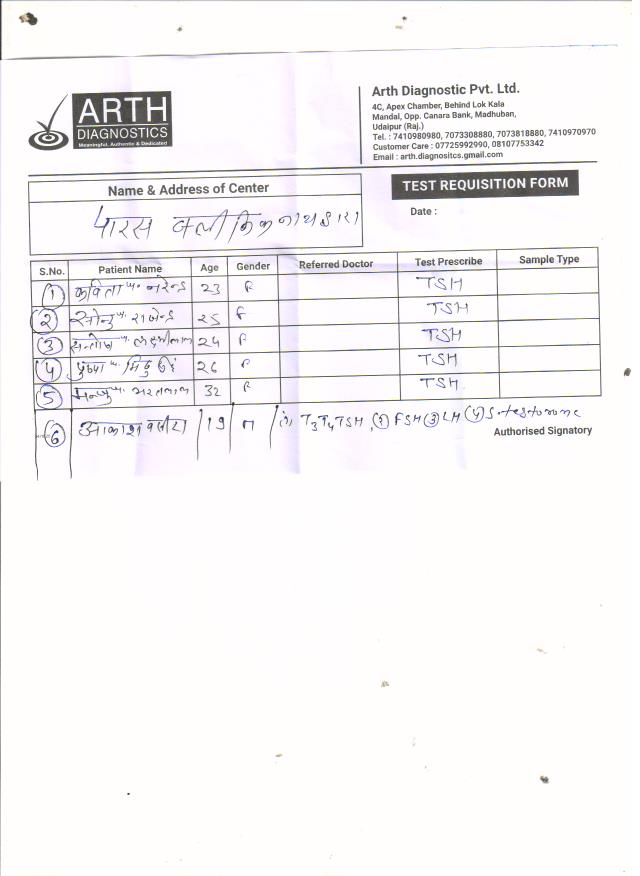 ARTH
DIAGNOSTICS
Meaningful, Authentic & Dedicated
Arth Diagnostic Pvt. Ltd.
4C, Apex Chamber, Behind Lok Kala
Mandal, Opp. Canara Bank, Madhuban,
Udaipur (Raj.)
Tel. : 7410980980, 7073308880, 7073818880, 7410970970
Customer Care : 07725992990, 08107753342
Email : arth.diagnositcs.gmail.com
Name & Address of Center
TEST REQUISITION FORM
पारस क्लीनिक नाथद्वारा
Date :
S.No. Patient Name Age Gender Referred Doctor Test Prescribe Sample Type
1 कविता w. नरेन्द्र 23 F TSH
2 सोनु w. राजेन्द्र 25 F TSH
3 सन्तोष w. 24 F TSH
4 पुष्पा w. 26 F TSH
5 w. भरतलाल 32 F TSH
6 आकाश 19 M (1) T3T4TSH, (2) FSH (3) LH (4)
Authorised Signatory